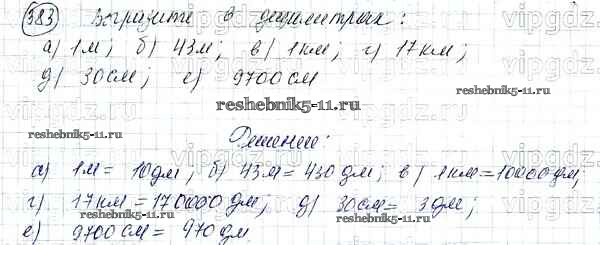 383 Выразите в дециметрах:
а) 1м; б) 43м; в) 1км; г) 17км;
д) 30см; е) 9700см
reshebnik5-11.ru
reshebnik5-11.ru
Решение:
а) 1м = 10дм; б) 43м = 430дм; в) 1км = 10000дм;
г) 17км = 170000дм; д) 30см = 3дм;
reshebnik5-11.ru
е) 9700см = 970дм.